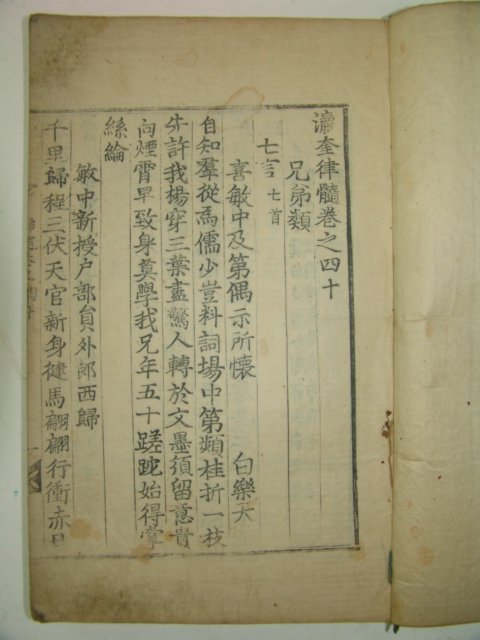 瀛奎律髓卷之四十
兄弟類
七言 七首
喜敏中及第偶示所懷 白樂天
自知羣從爲儒少豈料詞場中第頻桂折一枝
先許我楊穿三葉盡驚人轉於文墨須留意貴
向煙霄早致身莫學我兄年五十蹉跎始得掌
絲綸
敏中新授户部負外郎西歸
千里歸程三伏天官新身健馬翩翩行衝赤日